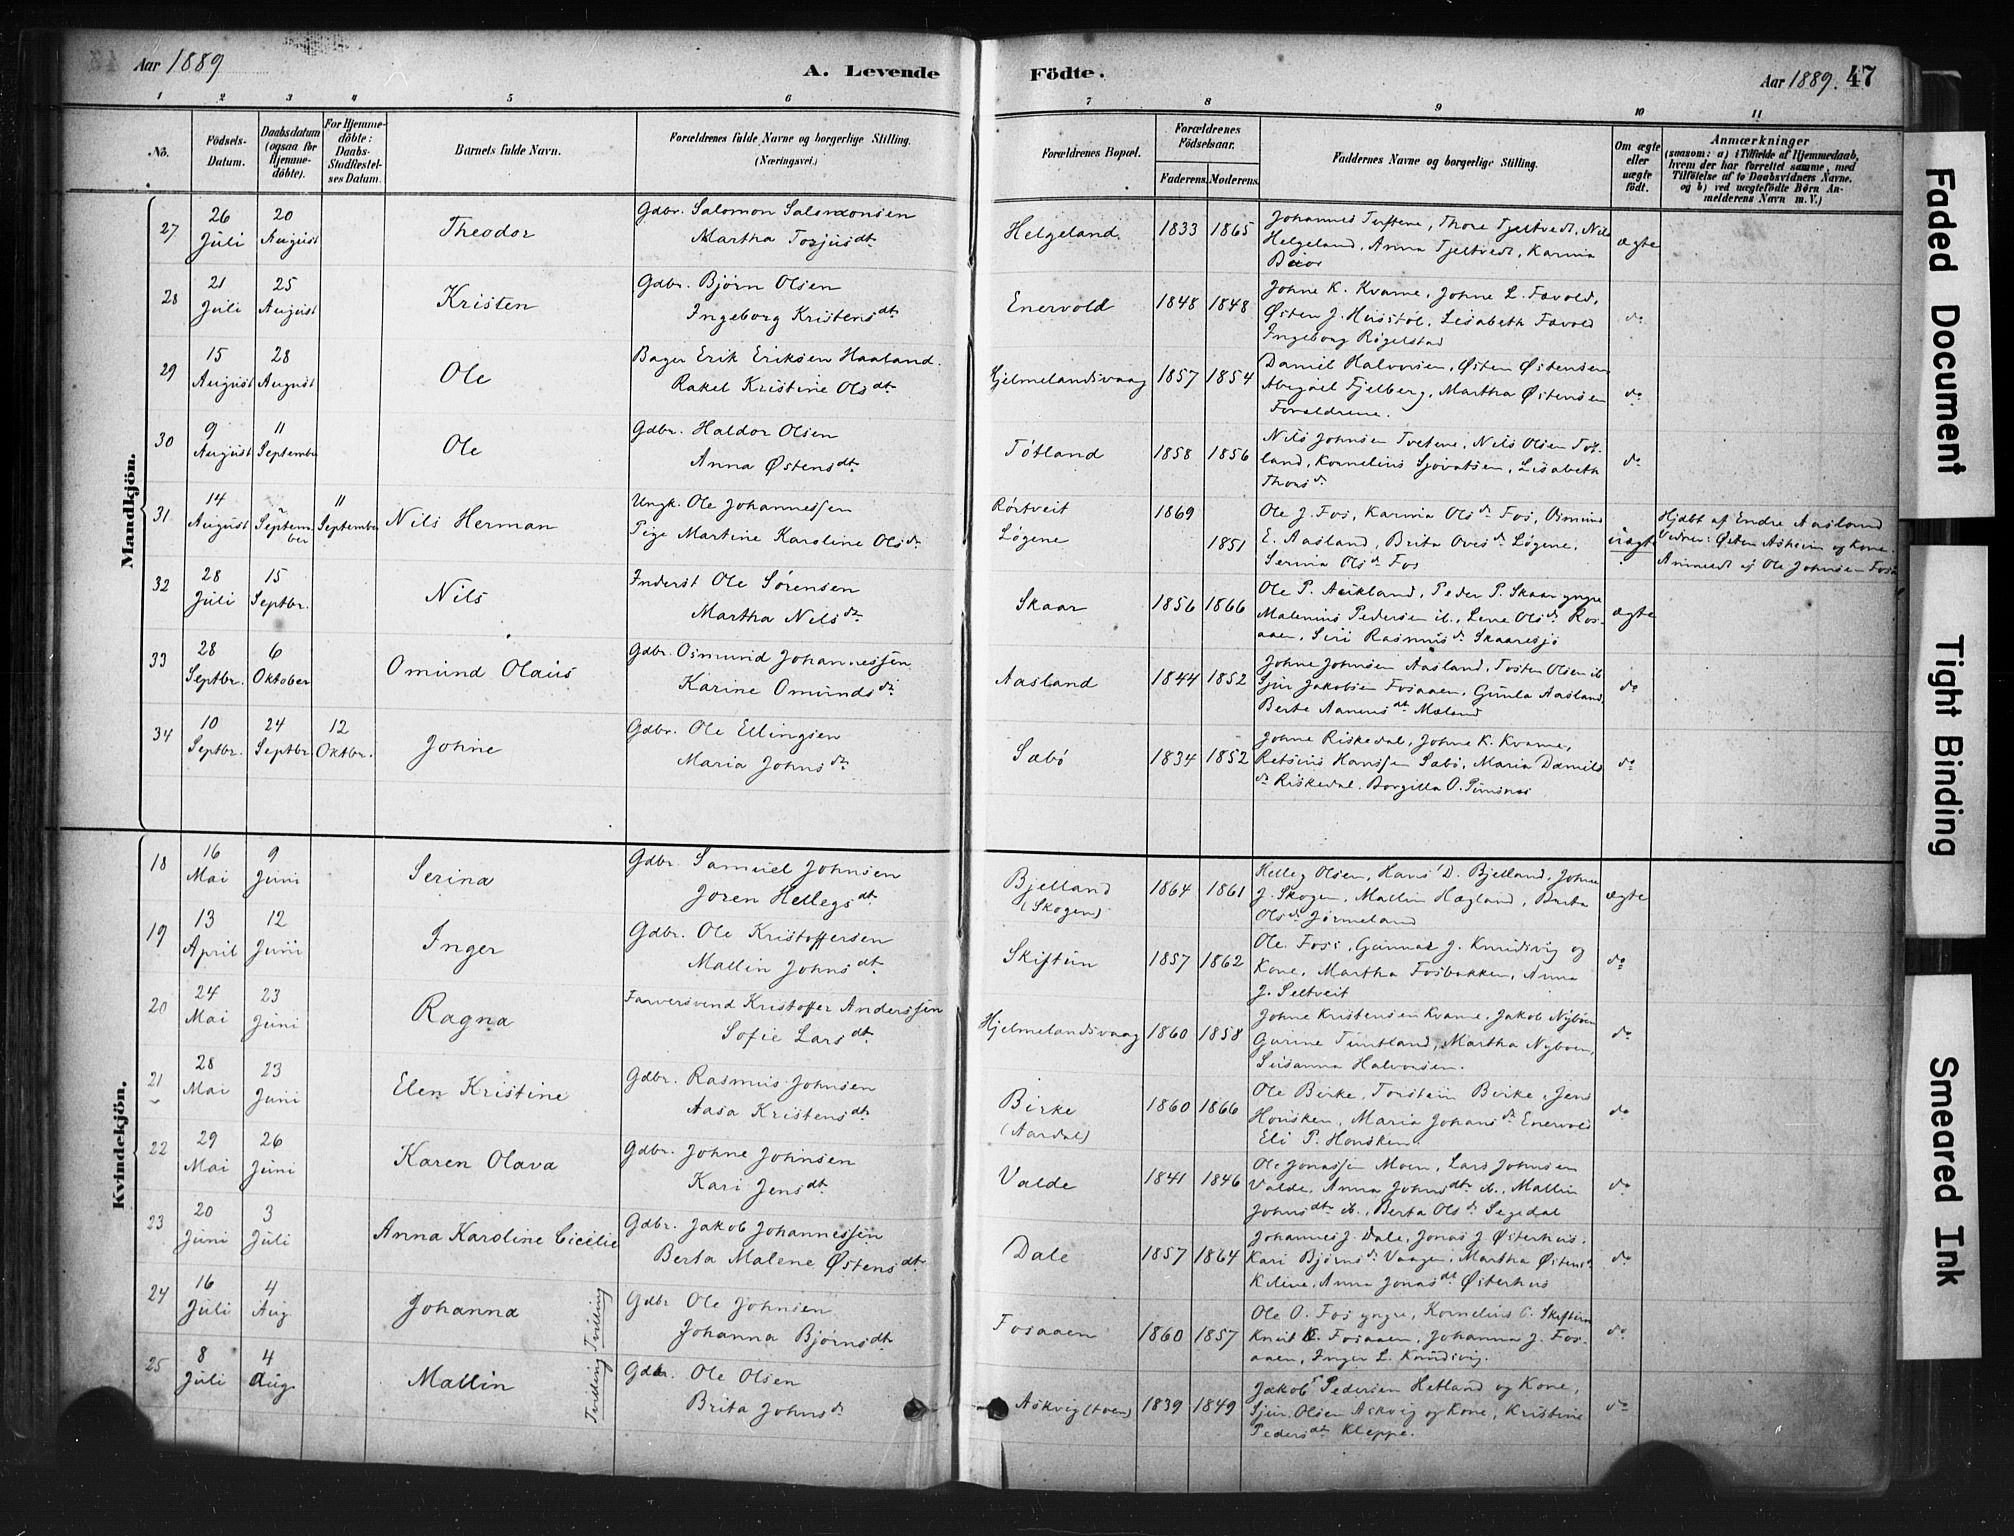 Aar 1889
A. Levende Födte.
Aar 1889. 47
1 2 3 4 5 6 7 8 9 10 11
No.
Födsels-Datum.
Daabsdatum (ogsaa for Hjemme-döbte).
For Hjemme-döbte: Daabs-Stadfæstel-ses Datum.
Barnets fulde Navn.
Forældrenes fulde Navne og borgerlige Stilling. (Næringsvei.)
Forældrenes Bopæl.
Forældrenes Födselsaar.
Faderens. Moderens.
Faddernes Navne og borgerlige Stilling.
Om ægte eller uægte födt.
Anmærkninger
(saasom: a) i Tilfælde af Hjemmedaab, hvem der har forrettet samme, med Tilföielse af to Daabsvidners Navne. og b) ved uægtefödte Börn An-melderens Navn m. V.)
Mandkjön.
27 26 Juli 20 August Theodor Gdbr. Salomon Salomonsen
Martha Torjusdt. Helgeland. 1833 1865 Johannes Tuftene, Thore Tjeltvedt, Nils
Helgeland, Anna Tjeltvedt, Karina
ægte
28 21 Juli 25 August Kristen Gdbr. Bjørn Olsen
Ingeborg Kristensdt. Enervold 1848 1848 Johne K. Kvame, Johne L. Fævold,
Østen J. Husstøl, Lisabeth Fævold
Ingeborg Røgelstad
do
29 15 August 28 August Ole Bager Erik Eriksen Haaland.
Rakel Kristine Olsdt. Hjelmelandsvaag 1857 1854 Daniel Halvorsen, Østen Østensen
Abigael Fjelberg, Martha Østensen
Forældrene.
do
30 9 August 11 September Ole Gdbr. Haldor Olsen
Anna Østensdt. Tøtland 1858 1856 Nils Johnsen Tvetene, Nils Olsen Tøt-
land, Kornelius Sjovatsen, Lisabeth
Thorsd.
do
31 14 August September 11 September Nils Herman Ungk. Ole Johannessen
Pige Martine Karoline Olsd. Rørtveit
Løgene 1869 1851 Ole J. Fos, Karina Olsd. Fos, Osmund
E. Aasland, Brita Ovesd. Løgene,
Serina Olsd. Fos
uægte
Hjdøbt af Endre Aasland
Vidner: Østen Askvin og Kone.
Anmeldt af Ole Johnsen
32 28 Juli 15 Septbr. Nils Inderst Ole Sørensen
Martha Nilsd. Skaar 1856 1866 Ole P. Aukland, Peder P. Skaar yngre
Malenius Pedersen ib., Lene Olsd. Ros-
aaen, Siri Rasmusd. Skaaresjø
ægte
33 28 Septbr. 6 Oktober Omund Olaus Gdbr. Osmund Johannessen
Karine Omundsd. Aasland 1844 1852 Johne Johnsen Aasland, Tosten Olsen ib
Sjur Jakobsen Fosaaen, Gunla Aasland,
Berte Aanensdt. Mæland
do
34 10 Septbr. 24 Septbr. 12 Oktbr. Johne Gdbr. Ole Ellingsen
Maria Johnsd. Sæbø 1834 1852 Johne Riskedal, Johne K. Kvame,
Retsius Hanssen Sæbø, Maria Daniels
d. Riskedal, Borgilla O. Pundsnes
do
Kvindekjön.
18 16 Mai 9 Juni Serina Gdbr. Samuel Johnsen
Joren Hellegsdt. Bjelland (Skogen) 1864 1861 Helleg Olsen, Hans D. Bjelland, Johne
J. Skogen, Mallin Hægland, Berta
Olsd. Jørmeland
ægte
19 13 April 12 Juni Inger Gdbr. Ole Kristoffersen
Mallin Johnsdt. Skiftun 1857 1862 Ole Foss, Gunnar J. Knudsvig og
Kone, Martha Fosbakken, Anna
J. Seltveit
do
20 24 Mai 23 Juni Ragna Farversvend Kristoffer Anderssen
Sofie Larsdt. Hjelmelandsvaag 1860 1858 Johne Kristensen Kvame, Jakob Nyboen
Gurine Tuntland, Martha Nyboen,
Susanna Halvorsen.
do
21 28 Mai 23 Juni Elen Kristine Gdbr. Rasmus Johnsen
Aasa Kristensdt. Birke (Aardal) 1860 1866 Ole Birke, Torstein Birke, Jens
Housken, Maria Johansd. Enervold
Eli P. Housken.
do
22 29 Mai 26 Juni Karen Olava Gdbr. Johne Johnsen
Kari Jensdt. Valde 1841 1846 Ole Jonassen Moen, Lars Johnsen
Valde, Anna Johnsdt. ib., Mallin
Johnsdt. ib., Berta Olsd. Segedal
do
23 20 Juni 3 Juli Anna Karoline Cicelie Gdbr. Jakob Johannessen
Berta Malene Østensdt. Dale 1857 1864 Johannes J. Dale, Jonas J Østerhus,
Kari Bjørnsd. Vaagen, Martha Østensd.
Kleive, Anna Jonasdt. Østerhus
do
24 16 Juli 4 Aug. Johanna Tvilling Gdbr Ole Johnsen
Johanna Bjørnsdt. Fosaaen 1860 1857 Ole O. Fos yngre, Kornelius O. Skiftun
Knut K. Fosaaen, Johanna J. Fos-
aaen, Inger L. Knudsvig.
do
25 8 Juli 4 Aug. Mallin Tvilling Gdbr. Ole Olsen
Brita Johnsd. Askvig (tven) 1839 1849 Jakob Pedersen Hetland og Kone,
Sjur Olsen Askvig og Kone, Kristine
Pedersdt. Kleppe.
do
Faded Document
Tight Binding
Smeared Ink